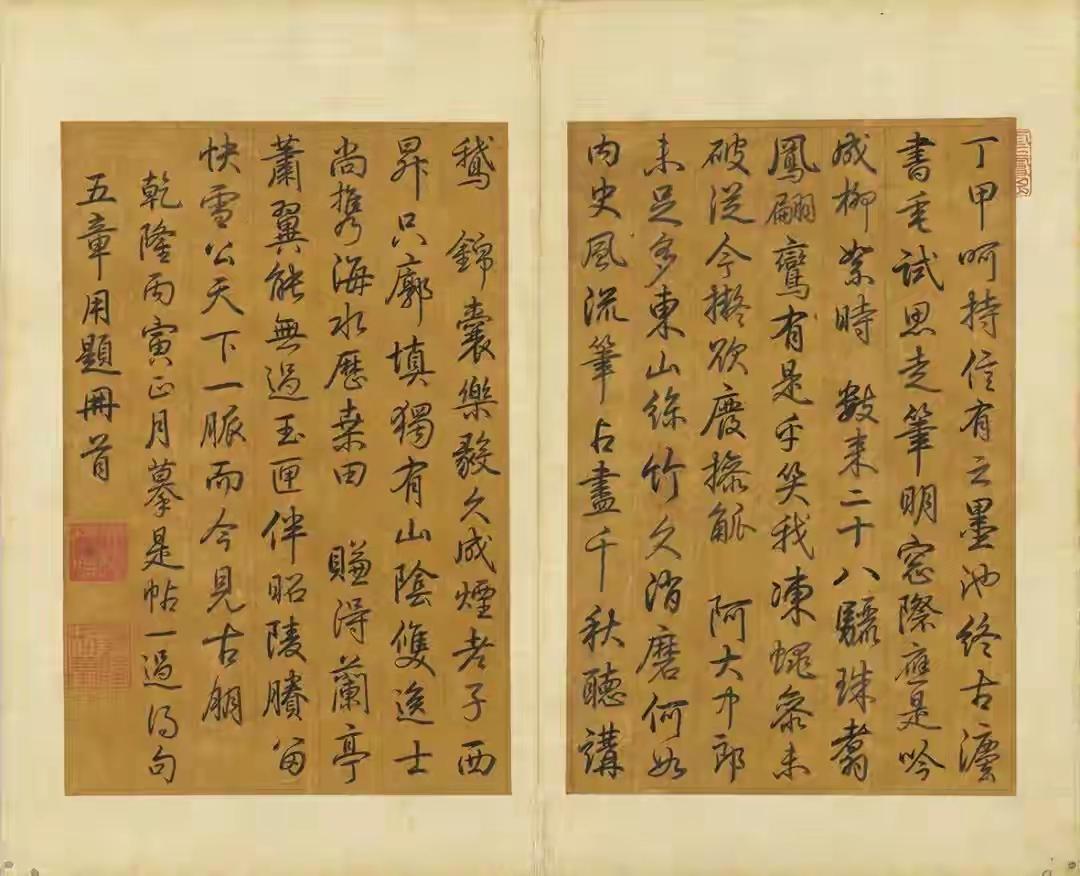 丁甲呵持信有之墨池終古
書垂試思走筆明窓際應是吟
成柳絮時 數來二十八驪珠翥
鳳翩鸞有是乎笑我凍蠅參未
破從今擬欲廢操觚 阿大中郎
未足多東山絲竹久消磨何如
内史風流筆占盡千秋聽講
鵝 錦囊樂毅久成煙老子西
昇只廓填獨有山陰雙逸士
尚携海水歷桑田 賺得蘭亭
蕭翼能無過玉匣伴昭陵賸留
快雪公天下一脈而今見古朋
乾隆丙寅正月摹是帖一過得句
五章用題冊首